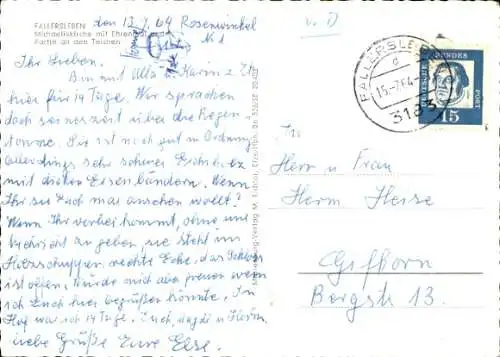 FALLERSLEBEN
Michaeliskirche mit Ehrenmal
Partie an den Teichen
den 13.7.64 Rosenwinkel
No 1
v. D
Ihr Lieben.
Bin mit Ulla, Karin z. Zt.
hier für 14 Tage. Wir sprachen
doch seinerzeit über die Regen
tonne. Sie ist noch gut in Ordnung
allerdings sehr schwer Eichholz
mit dicken Eisenbändern. Wenn
Ihr sie Euch mal ansehen wollt?
Wenn Ihr vorbei kommt, ohne uns
Nachricht zu geben, sie steht im
Holzschuppen, rechte Ecke, das Schloß
ist offen. Würde mich aber freuen wenn
ich Euch hier begrüßen könnte. In
war ich 14 Tage.
liebe Grüße Eure Else.
FALLERSLEBEN
d
15.-7.64
3183
DEUTSCHE BUNDESPOST
15
An
Herrn u Frau
Herm Heise
Gifhorn
Bergstr 13.